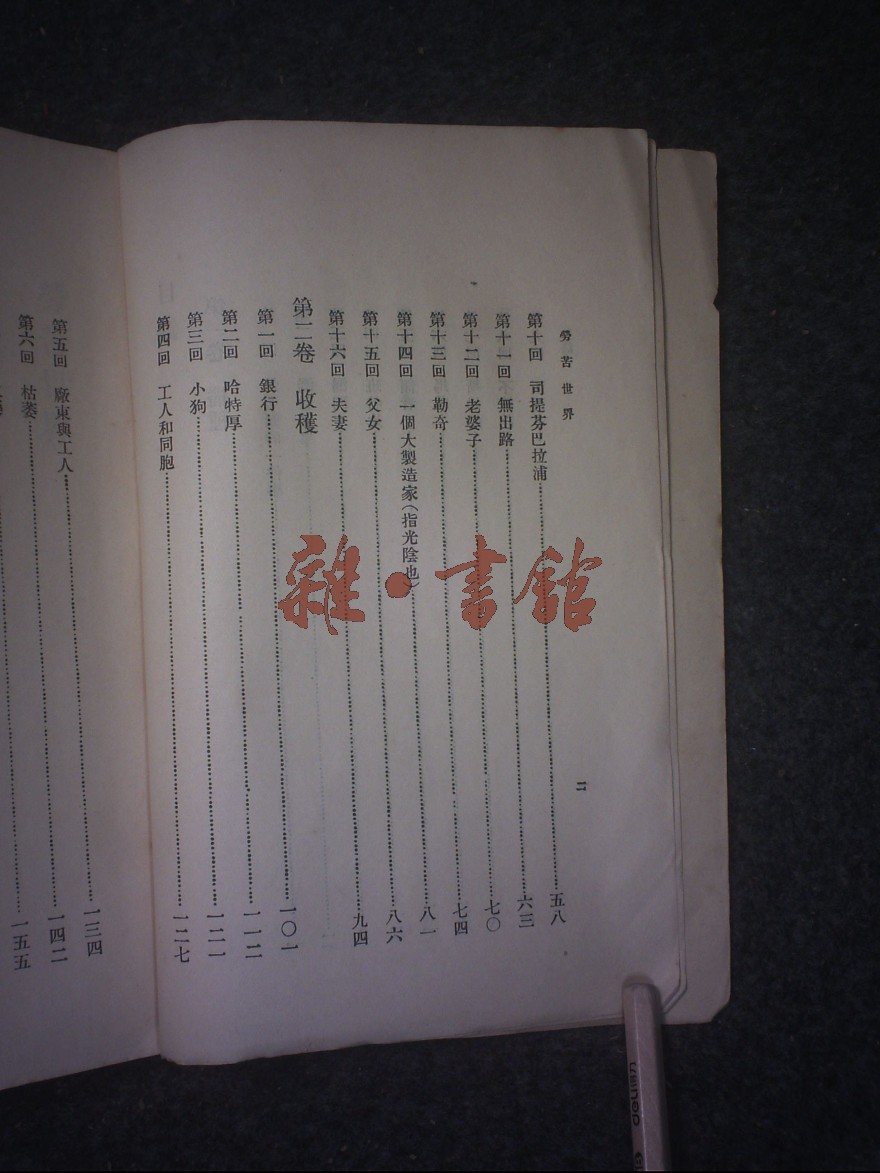 勞苦世界
二
第十回 司提芬巴拉浦……五八
第十一回 無出路……六三
第十二回 老婆子……七〇
第十三回 勒奇……七四
第十四回 一個大製造家(指光陰也)……八一
第十五回 父女……八六
第十六回 夫妻……九四
第二卷 收穫
第一回 銀行……一〇一
第二回 哈特厚……一一二
第三回 小狗……一二一
第四回 工人和同胞……一二七
第五回 廠東與工人……一三四
第六回 枯萎……一四二
一五五
雜·書館
deli 得力